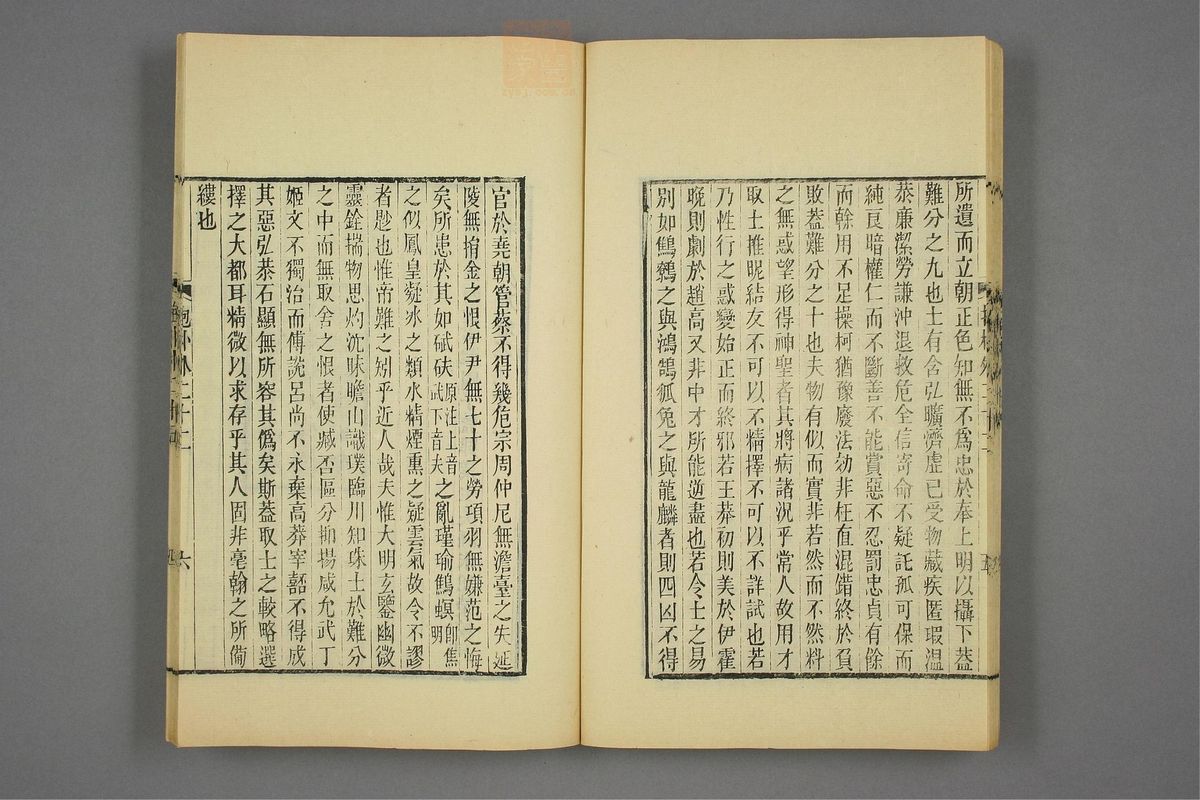 所遺而立朝正色知無不爲忠於奉上明以攝下蓋
難分之九也士有含弘曠濟虛已受物藏疾匿瑕溫
恭廉潔勞謙沖退救危全信寄命不疑託孤可保而
純良暗權仁而不斷善不能賞惡不忍罰忠貞有餘
而幹用不足操柯猶豫廢法効非枉直混錯終於負
敗蓋難分之十也夫物有似而實非若然而不然料
之無惑望形得神聖者其將病諸況乎常人故用才
取士推昵結友不可以不精擇不可以不詳試也若
乃性行之惑變始正而終邪若王莽初則美於伊霍
晚則劇於趙高又非中才所能逆盡也若令士之易
別如鷦鷯之與鴻鵠狐兔之與龍麟者則四凶不得
官於堯朝管蔡不得幾危宗周仲尼無澹臺之失延
陵無捐金之恨伊尹無七十之勞項羽無嫌范之悔
矣所患於其如碔砆原注上音武下音夫之亂瑾瑜鷦螟卽焦明
之似鳳皇凝冰之類水精煙熏之疑雲氣故令不謬
者尟也惟帝難之矧乎近人哉夫惟大明玄鑒幽微
靈銓揣物思灼沈昧瞻山識璞臨川知珠士於難分
之中而無取舍之恨者使臧否區分抑揚咸允武丁
姬文不獨治而傅說呂尚不永棄高莽宰嚭不得成
其惡弘恭石顯無所容其僞矣斯蓋取士之較略選
擇之大都耳精微以求存乎其人固非毫翰之所備
縷也
抱朴外二十二
六